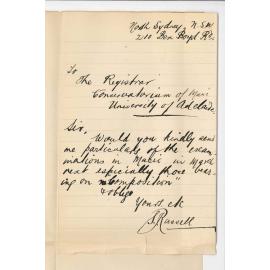 North Sydney, N.S.W
210 Ben Boyd Rd.
To
The Registrar
Conservatorium of Music
University of Adelaide
Sir,
Would you kindly send
me particulars of the exam-
inations in Music in
next especially those bear-
ing on "Composition"
& oblige
Yours &c
Russell